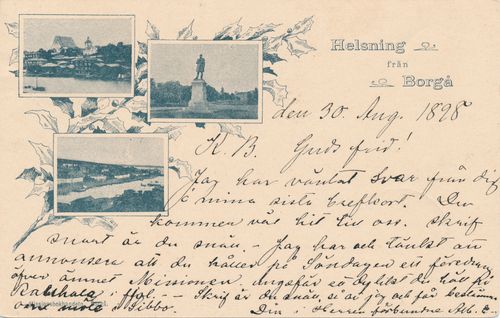 Helsning
från
Borgå
den 30 Aug. 1898
K. B. Guds frid!
Jag har väntat svar från dig
å mina sista brefkort. Du
kommen väl hit till oss. skrif
snart är du snäll. – Jag har och tänkt an
annonsera att du håller på Söndagen ett föredrag
öfver ämnet Missionen, ungefär så dylikt du höll på
i Sibbo. – Skrif är du snäll, så
Din i Herren förbundne Alb. E-